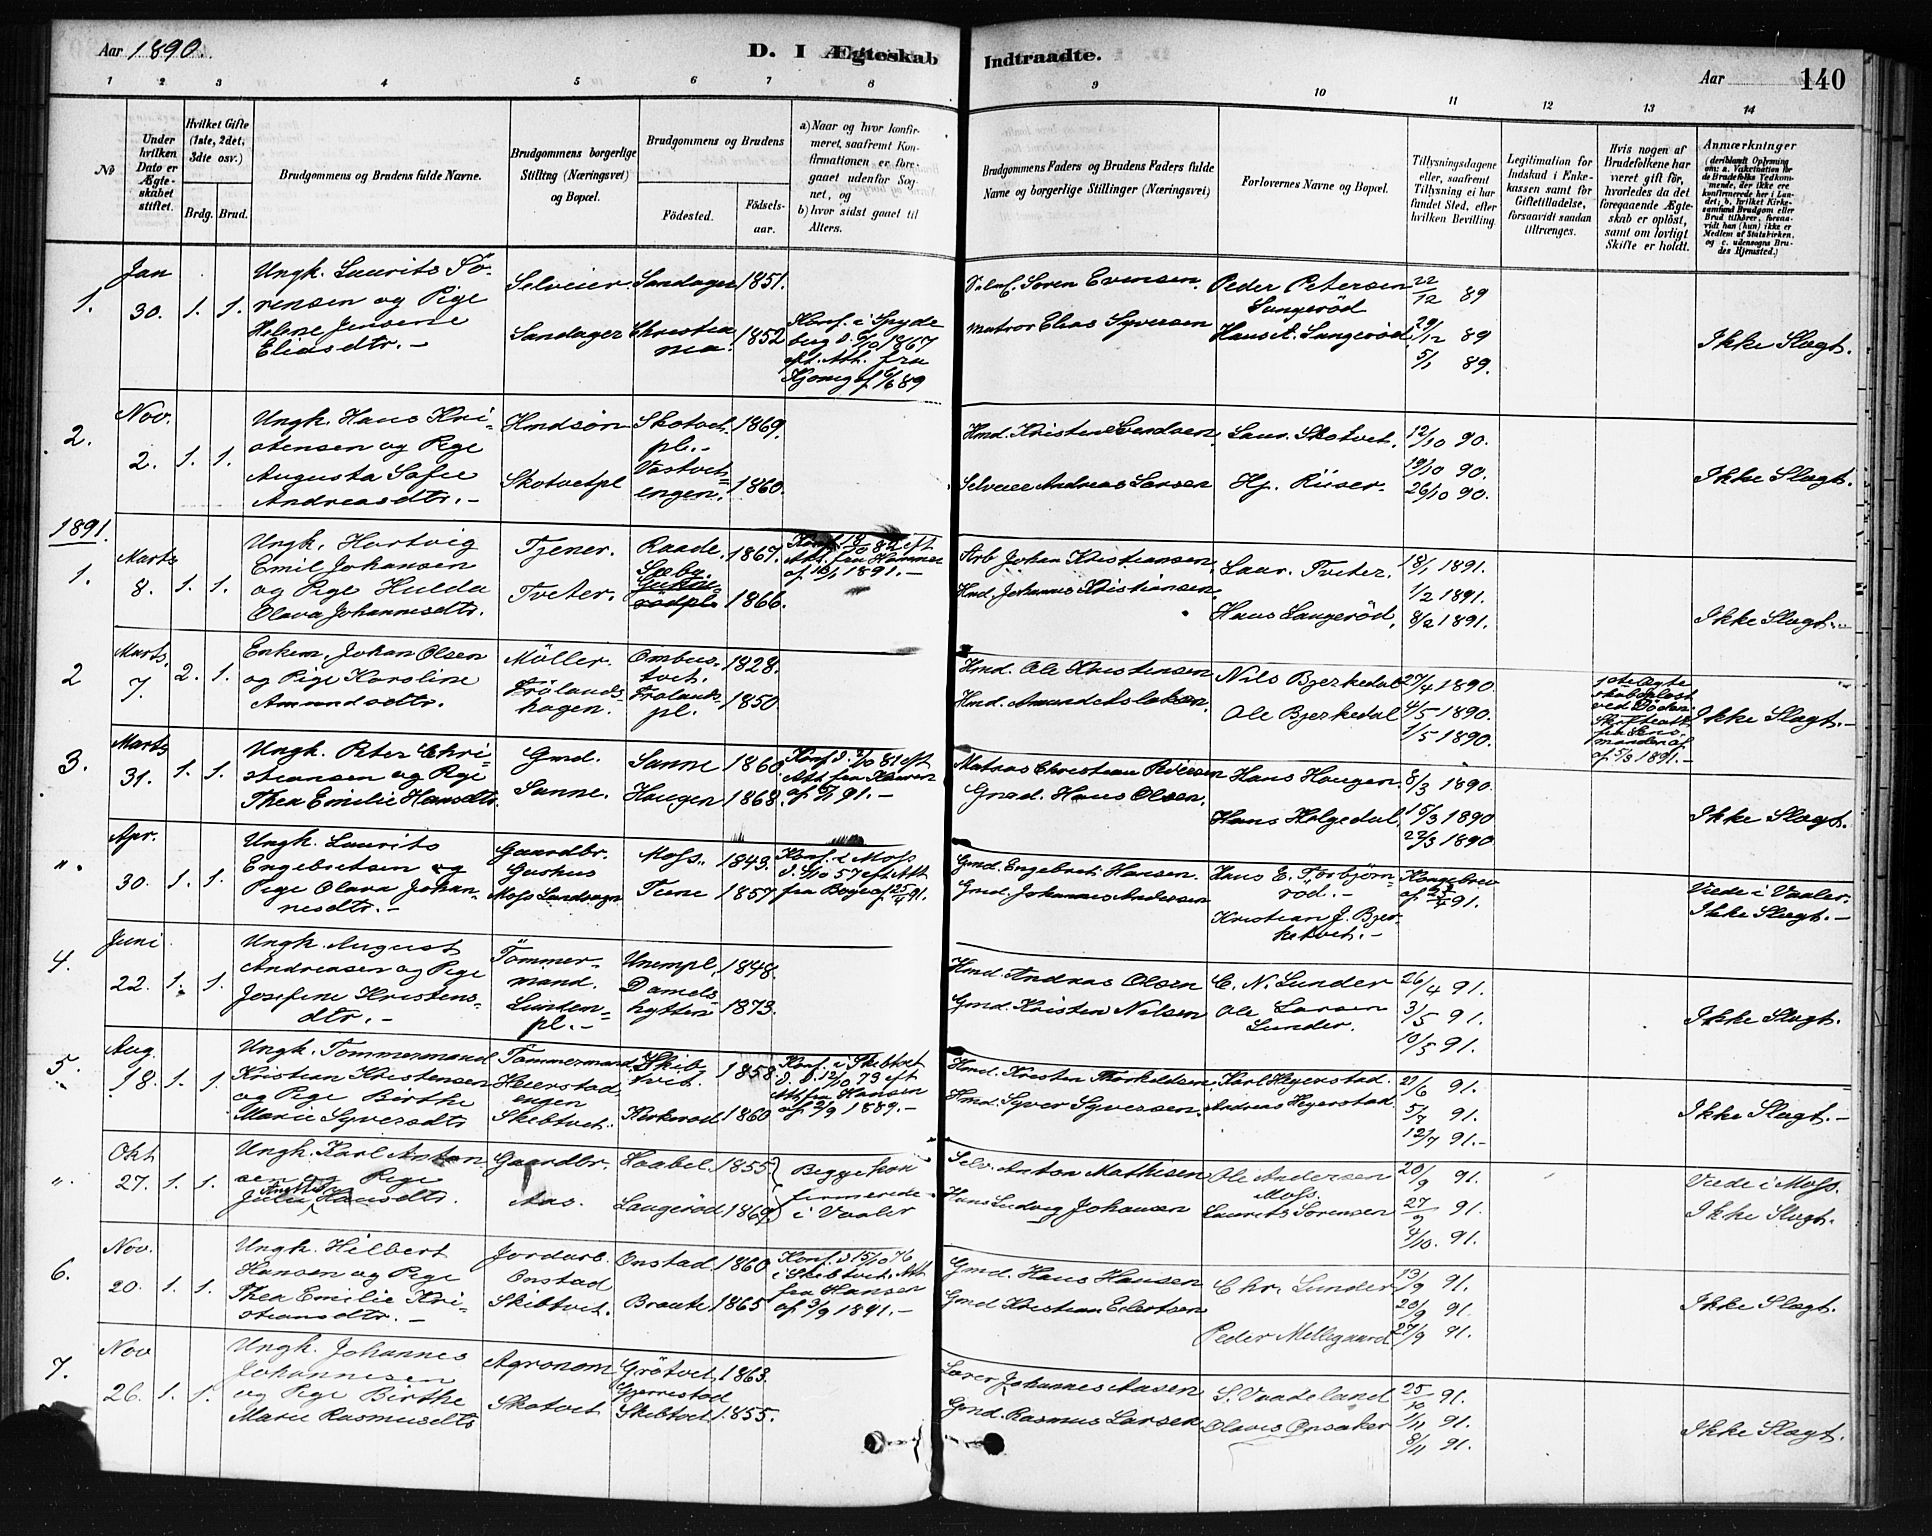 Aar 1890.
D. I Ægteskab Indtraadte.
Aar 140
1 2 3 4 5 6 7 8 9 10 11 12 13 14
No
Under hvilken Dato er Ægteskabet stiftet.
Hvilket Gifte (1ste, 2det, 3die osv.)
Brdg. Brud.
Brudgommens og Brudens fulde Navne.
Brudgommens borgerlige Stilling (Næringsvei) og Bopæl.
Brudgommens og Brudens
Födested. Födselsaar.
a) Naar og hvor konfirmeret, saafremt Konfirmationen er foregaaet udenfor Sognet, og
b) hvor sidst gaaet til Alters.
Brudgommens Faders og Brudens Faders fulde Navne og borgerlige Stillinger (Næringsvei)
Forlovernes Navne og Bopæl.
Tillysningsdagene eller, saafremt Tillysning ei har fundet Sted, efter hvilken Bevilling
Legitimation for Indskud i Enkekassen samt for Giftetilladelse, forsaavidt saadan tiltrænges.
Hvis nogen af Brudefolkene har været gift för, hvorledes da det foregaaende Ægteskab er oplöst, samt om lovligt Skifte er holdt.
Anmærkninger
1. Jan 30. 1. 1.
Ungk. Laurits Sörensen og Pige Helene Jensine Eliasdtr.-
Selveier Sandager
Sandager 1851.
Christiania. 1852
Konf. i Spydeberg
Selv. Soren Evensen.
Matros Elias Syversen
Peder Petersen Langeröd
Hans Langeröd
22/12 89
29/12 89
5/1 89.
Ikke Slægt.
2. Nov. 2. 1. 1.
Ungk. Hans Kristensen og Pige Augusta Sofie Andreasdtr.-
Hmdsön Skotvetpl
Skotvetpl.- 1869.
Vastvetengen. 1860.
Hmd. Kristen Svendsen.
Selveier Andreas Larsen
Laur. Skotvet.
Hj. Riiser.
12/10 90.
19/10 90.
26/10 90.
Ikke Slægt.
1891.
1. Marts 8. 1. 1.
Ungk. Hartvig Emil Johansen og Pige Hulda Olava Johannesdtr.
Tjener. Tveter.
Raade. 1867.
1866.
Arb Johan Kristiansen.
Hmd. Johannes Kristiansen.
Laur. Tveter.
Hans Langeröd.
18/1 1891.
1/2 1891.
8/2 1891.
Ikke Slægt.
2 Marts. 7. 2. 1.
Enkem. Johan Olsen og Pige Karoline Amundsdtr.
Möller. Frölandshagen.
Ombustvet. 1828.
Frölandspl. 1850.
Hmd. Ole Kristensen
Nils Bjerkedal
Ole Bjerkedal
27/4 1890.
4/5 1890.
1/5 1890.
1ste Ægteskab oplöst ved Döden.
Ikke Slægt.-
3. Marts 31. 1. 1.
Ungk. Peter Christiansen og Pige Thea Emilie Hansdtr.
Gmd. Sanne.
Sanne 1860
Haugen 1868.
Matros Christian Pedersen
Gmd. Hans Olsen.
Hans Haugen.
Hans Helgedal.
8/3 1890.
15/3 1890
22/3 1890
Ikke Slægt.
". Apr. 30. 1. 1.
Ungk. Laurits Engebretsen og Pige Olava Johannesdtr.-
Gaardbr. Gashus Moss Landsogn
Moss. 1843.
Teine 1857
Konf. i Moss
Gmd. Engebret Hansen.
Gmd. Johannes Andersen
Hans E. Torbjörnröd.-
Kristian J. Bjerketvet.-
Kongebrev af 25/4 91.
Viede i Vaaler.
Ikke Slægt.-
4. Juni 22. 1. 1.
Ungk. August Andreasen og Pige Josefine Kristensdtr.-
Tömmermand. Lundenpl.-
Unempl. 1848.
Damelshytten 1873.
Hmd. Andreas Olsen
Gmd. Kristen Nilsen
C. N. Lunder
Ole Larsen Lunder.
26/4 91.
3/5 91.
10/5 91.
Ikke Slægt.
5. Aug. 18. 1. 1.
Ungk. Tommermand Kristian Kristensen og Pige Birthe Marie Syversdtr
Tömmermand Heierstadengen Skibtvet.
Skibtvet. 1858.
Kirkeröd 1860
Konf. i Skibtvet d. 12/10 73 eft Att fra Hansen af 2/9 1889.-
Hmd. Kristen Thorkeldsen.
Hmd. Syver Syversen.
Karl Heyerstad.
Andreas Heyerstad
5/7 91.
12/7 91.-
Ikke Slægt.-
". Okt 27. 1. 1.
Ungk. Karl Antonsen og Pige Julie Hansdtr.
Gaardbr. Aas.
Haabel. 1855
Langeröd 1869
Begge konfirmerede i Vaaler
Selv. Anton Mathisen
Hans Ludvig Johansen
Ole Andersen Moss.
Laurits Sörensen
20/9 91.
27/9 91.
4/10. 91.
Viede i Moss.
Ikke Slægt.
6. Nov. 20. 1. 1.
Ungk. Hilbert Hansen og Pige Thea Emilie Kristiansdtr.-
Jordarb. Onstad Skibtvet.
Onstad 1860
Braate 1865
Konf. d 15/10 76 i Skibtvet. Att fra Hansen af 3/9 1891.-
Gmd. Hans Hansen
Gmd Kristian Eilertsen
Chr. Lunder
Peder Mellegaard
13/9 91.
20/9 91.
27/9 91.
Ikke Slægt.
7. Nov 26. 1. 1.
Ungk. Johannes Johannesen og Pige Birthe Marie Rasmusdtr
Agronom Skotvet
Grötvet 1863.
Gjerrestad Skibtvet 1855.
Lærer Johannes Aasen
Gmd. Rasmus Larsen
S. Vaadeland
Olaves Onsaker
25/10 91.
1/11 91.
8/11 91.
Ikke Slægt.